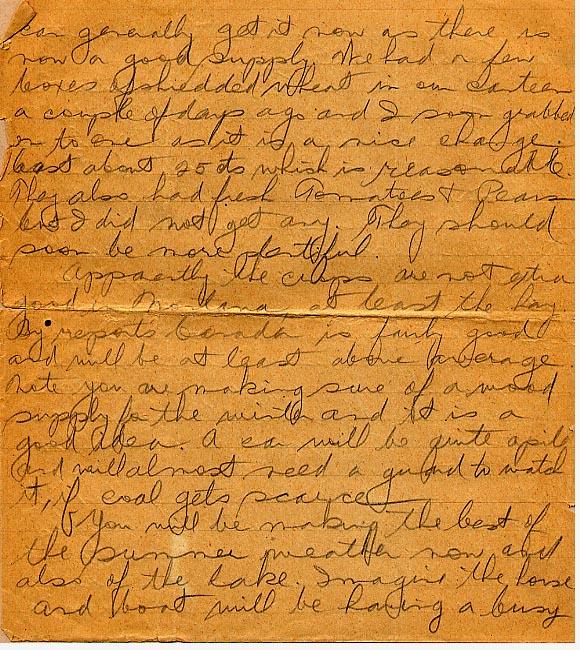 can generally get it now as there is
now a good supply. We had a few
boxes of shredded wheat in our canteen
a couple of days ago and I soon grabbed
on to one as it is a nice change.
Cost about 25 cts which is reasonable.
They also had fresh Tomatoes & Pears
but I did not get any. They should
soon be more plentiful.
Apparently the crops are not extra
good in Montana, at least the hay.
By reports Canada is fairly good
and will be at least above average.
Note you are making sure of a wood
supply for the winter and it is a
good idea. A car will be quite a pile
and will almost need a guard to watch
it, if coal gets scarce.
You will be making the best of
the summer weather now and
also of the lake. Imagine the horse
and boat will be having a busy